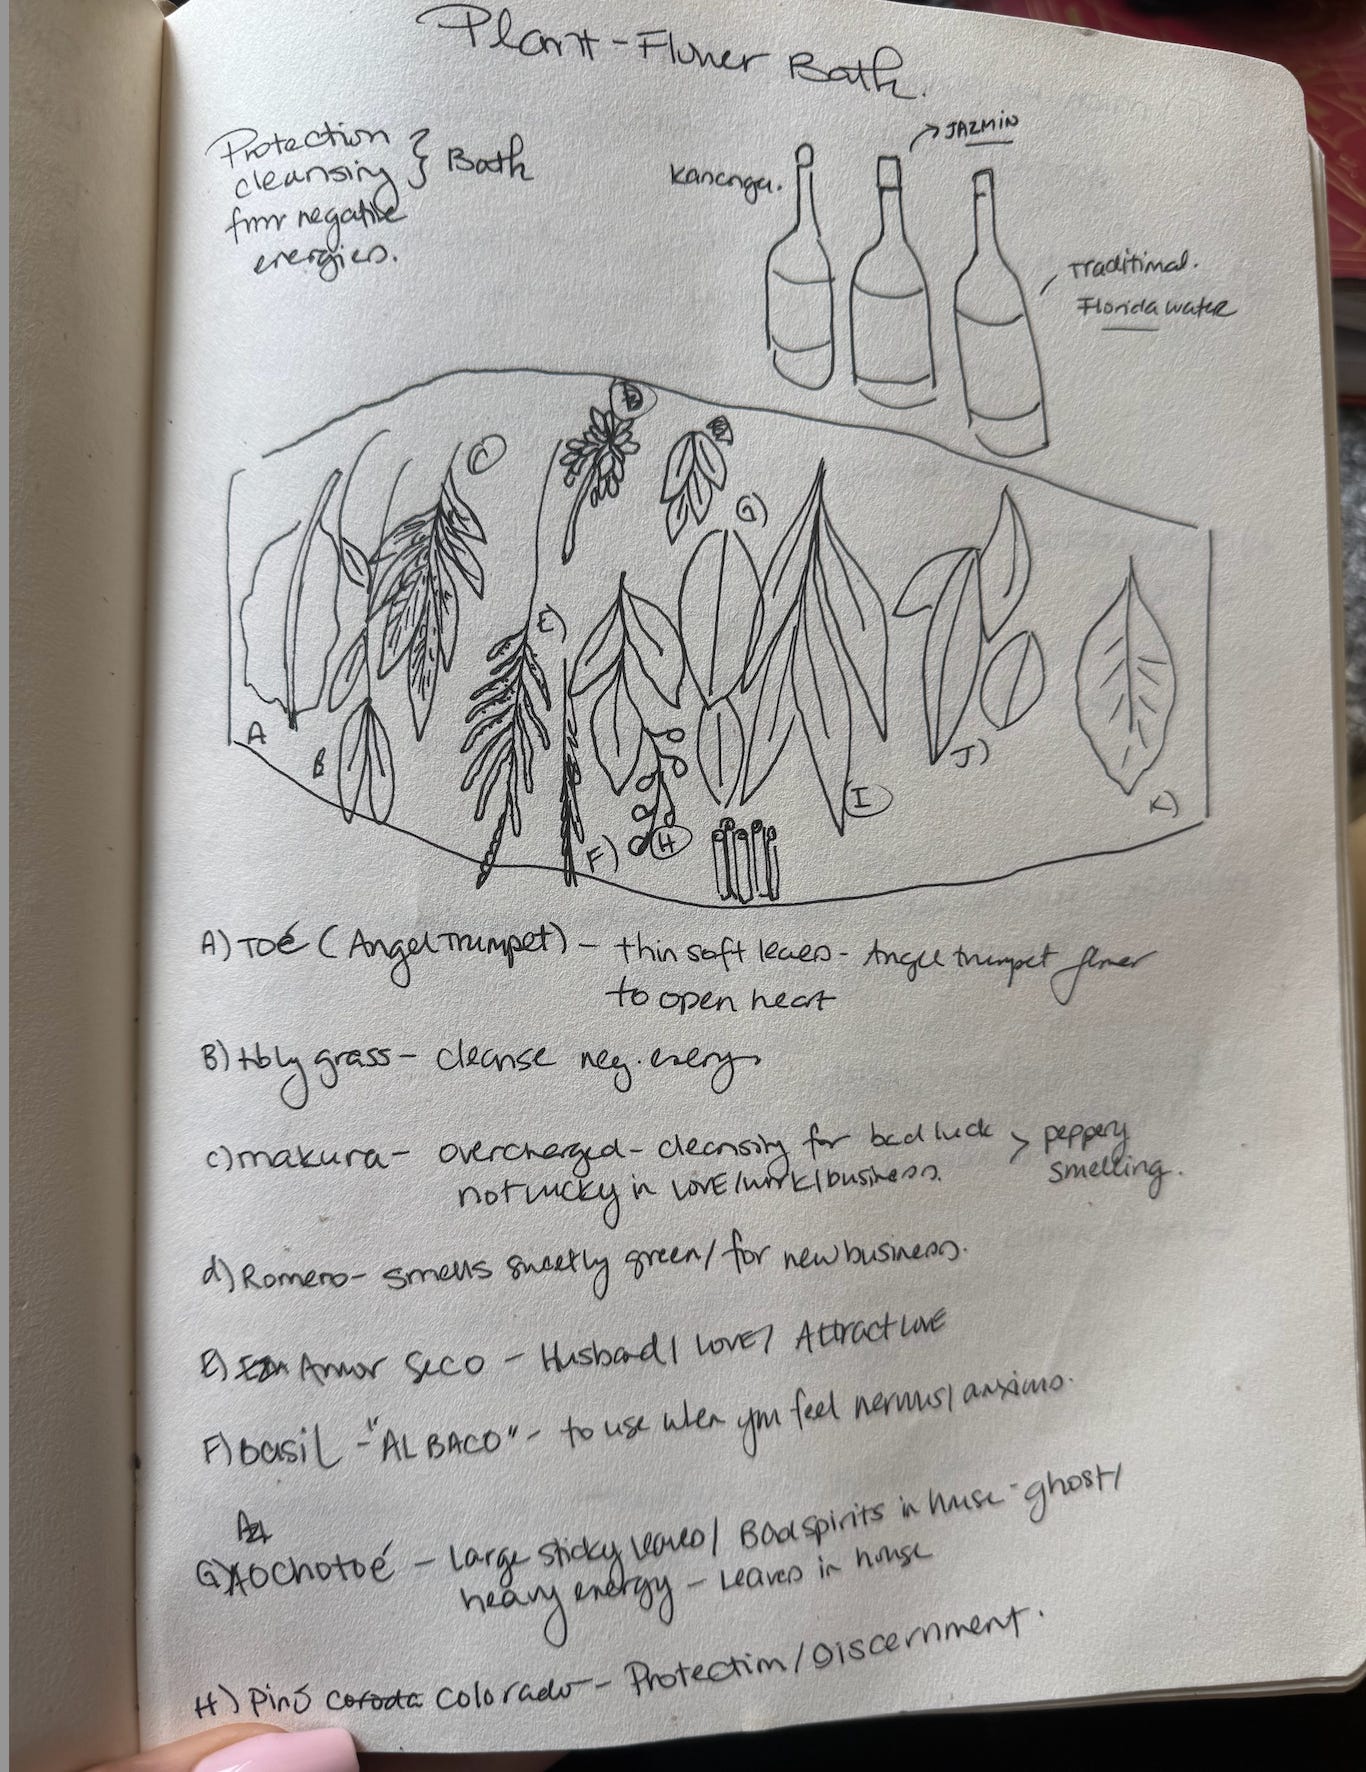 Plant-Flower Bath.
Protection
cleansing } Bath
from negative
energies.
Kananga.
JAZMIN
Traditional.
Florida water
C
D
G)
E)
A
B
J)
I
K)
F)
H
A) TOé (Angel Trumpet) - thin soft leaves - Angel trumpet flower
to open heart
B) Holy grass - cleanse neg. energy
c) makura - overcharged - cleansing for bad luck > peppery
not lucky in LOVE/work/business. smelling.
d) Romero - smells sweetly green/ for new business.
E) Amor Seco - Husband/ LOVE/ Attract LOVE
F) basil - "ALBACO" - to use when you feel nervous/ anxious.
G) AOchotoé - Large sticky leaves/ Bad spirits in house - ghost/
heavy energy - Leaves in house
H) Pinō coroda colorado - Protection/Discernment.